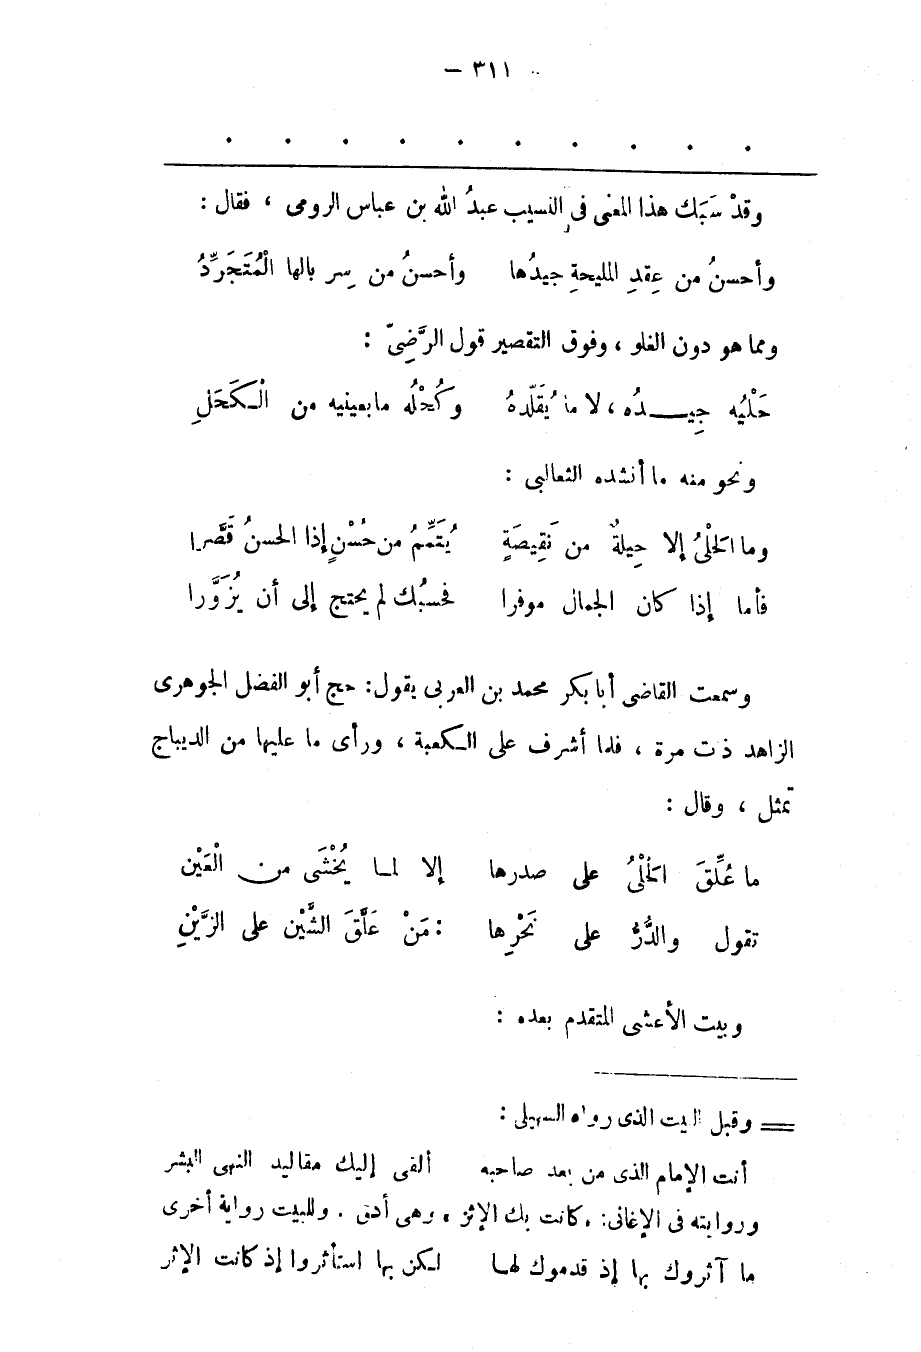 — ٣١١ —
وقدْ سَبَك هذا المعنى فى النسيب عبدُ الله بن عباس الرومى ، فقال :
وأحسنُ من عِقدِ المليحةِ جيدُها وأحسنُ من سِر بالها الْمُتَجَرِّدُ
ومما هو دون الغلو ، وفوق التقصير قول الرَّضِىّ :
حَلْيُه جِيـــدُه ، لا ما يُقَلّدهُ وكُحْلُه ما بعينيه من الْـكَحَلِ
ونحو منه ما أنشده الثعالبى :
وما الحَلْىُ إلا حِيلةٌ من نَقِيصَةٍ يُتَمِّمُ من حُسْنٍ إذا الحسنُ قَصَّرا
فأما إذا كان الجمال موفرا فحسبُك لم يحتج إلى أن يُزَوَّرا
وسمعت القاضى أبا بكر محمد بن العربى يقول : حج أبو الفضل الجوهرى
الزاهد ذت مرة ، فلما أشرف على الـكعبة ، ورأى ما عليها من الديباج
تمثل ، وقال :
ما عُلِّقَ الحَلْىُ على صدرها إلا لمـا يُخْشَى من الْعَيْن
تقول والدُّرُّ على نَحْرِها : مَنْ عَلَّقَ الشَّيْن على الزَّيْنِ
وبيت الأعشى المتقدم بعده :
= وقبل البيت الذى رواه السهيلى :
أنت الإمام الذى من بعد صاحبه ألقى إليك مقاليد النهى البشر
وروايته فى الإغانى : كانت بك الإثر ، وهى أدق . وللبيت رواية أخرى
ما آثروك بها إذ قدموك لهـا لـكن بها استأثروا إذ كانت الإثر